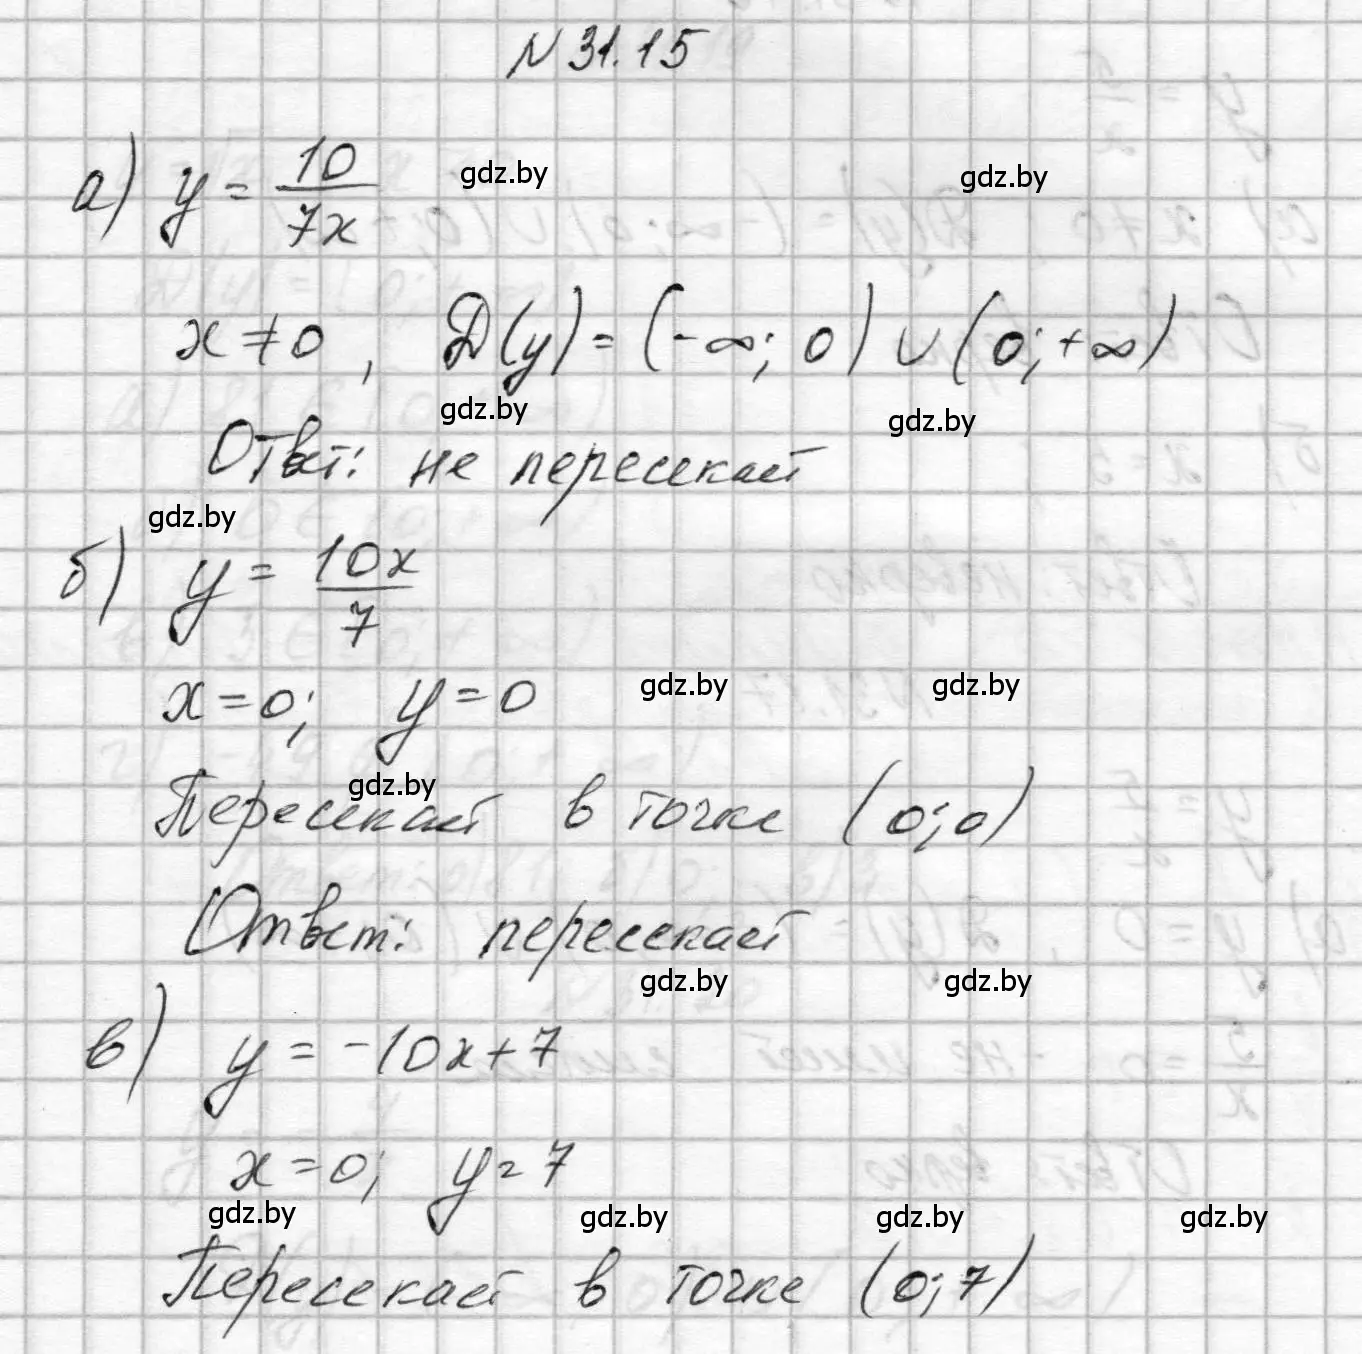 N 31.15
а) y = 10/7x
gdz.by gdz.by
x ≠ 0, D(y) = (-∞; 0) ∪ (0; +∞)
gdz.by gdz.by
Ответ: не пересекает
gdz.by
б) y = 10x/7
x = 0; y = 0
gdz.by gdz.by
gdz.by
Пересекает в точке (0; 0)
Ответ: пересекает
gdz.by gdz.by
в) y = -10x + 7
x = 0; y = 7
gdz.by gdz.by gdz.by gdz.by
Пересекает в точке (0; 7)